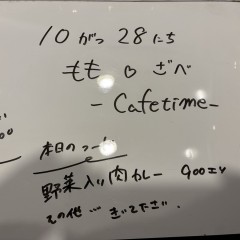 10がつ28にち
もも ○ ざべ
- Cafetime -
本日の
野菜入り肉カレー 900エン
その他…